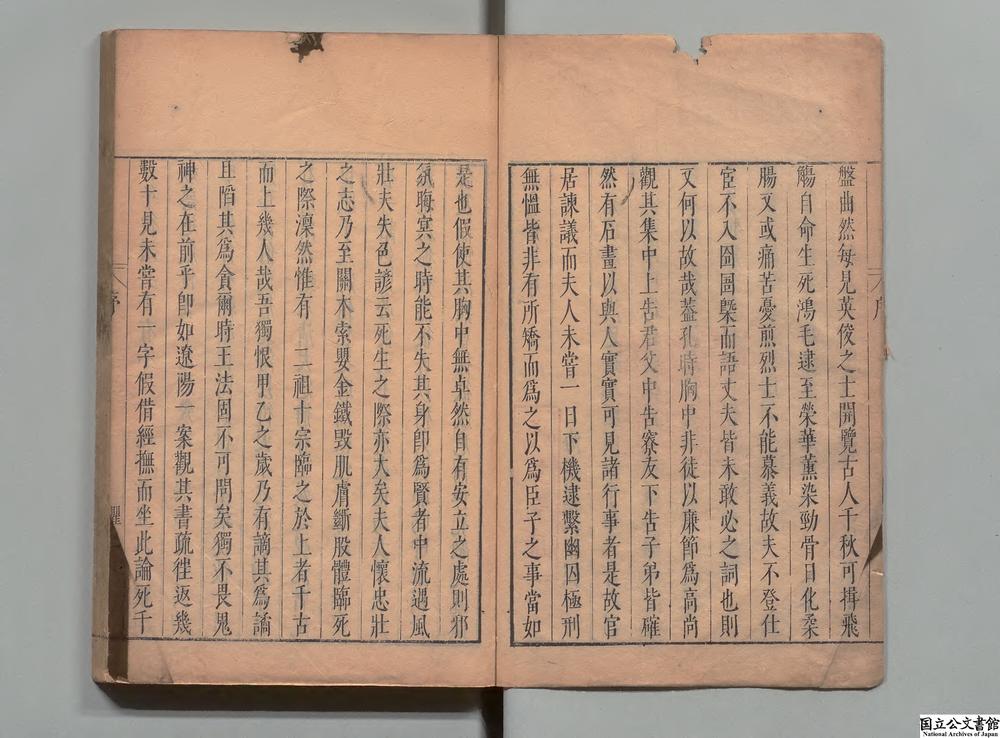 盤曲然每見英俊之士開覽古人千秋可揖飛
觴自命生死鴻毛逮至榮華薰染勁骨日化柔
腸又或痛苦憂煎烈士不能慕義故夫不登仕
宦不入囹圄槩而語丈夫皆未敢必之詞也則
又何以故哉蓋孔時胸中非徒以廉節為高尚
觀其集中上告君父中告寮友下告子弟皆確
然有石畫以與人實實可見諸行事者是故官
居諫議而夫人未嘗一日下機逮繫幽囚極刑
無慍皆非有所矯而爲之以爲臣子之事當如
是也假使其胸中無卓然自有安立之處則邪
氛晦冥之時能不失其身卽爲賢者中流遇風
壯夫失色諺云死生之際亦大矣夫人懷忠壯
之志乃至關木索嬰金鐵毀肌膚斷股體臨死
之際凜然惟有 二祖十宗臨之於上者千古
而上幾人哉吾獨恨甲乙之歲乃有謫其爲譎
且陷其爲貪爾時王法固不可問矣獨不畏鬼
神之在前乎卽如遼陽一案觀其書疏徃返幾
數十見未嘗有一字假借經撫而坐此論死千
序
国立公文書館
National Archives of Japan